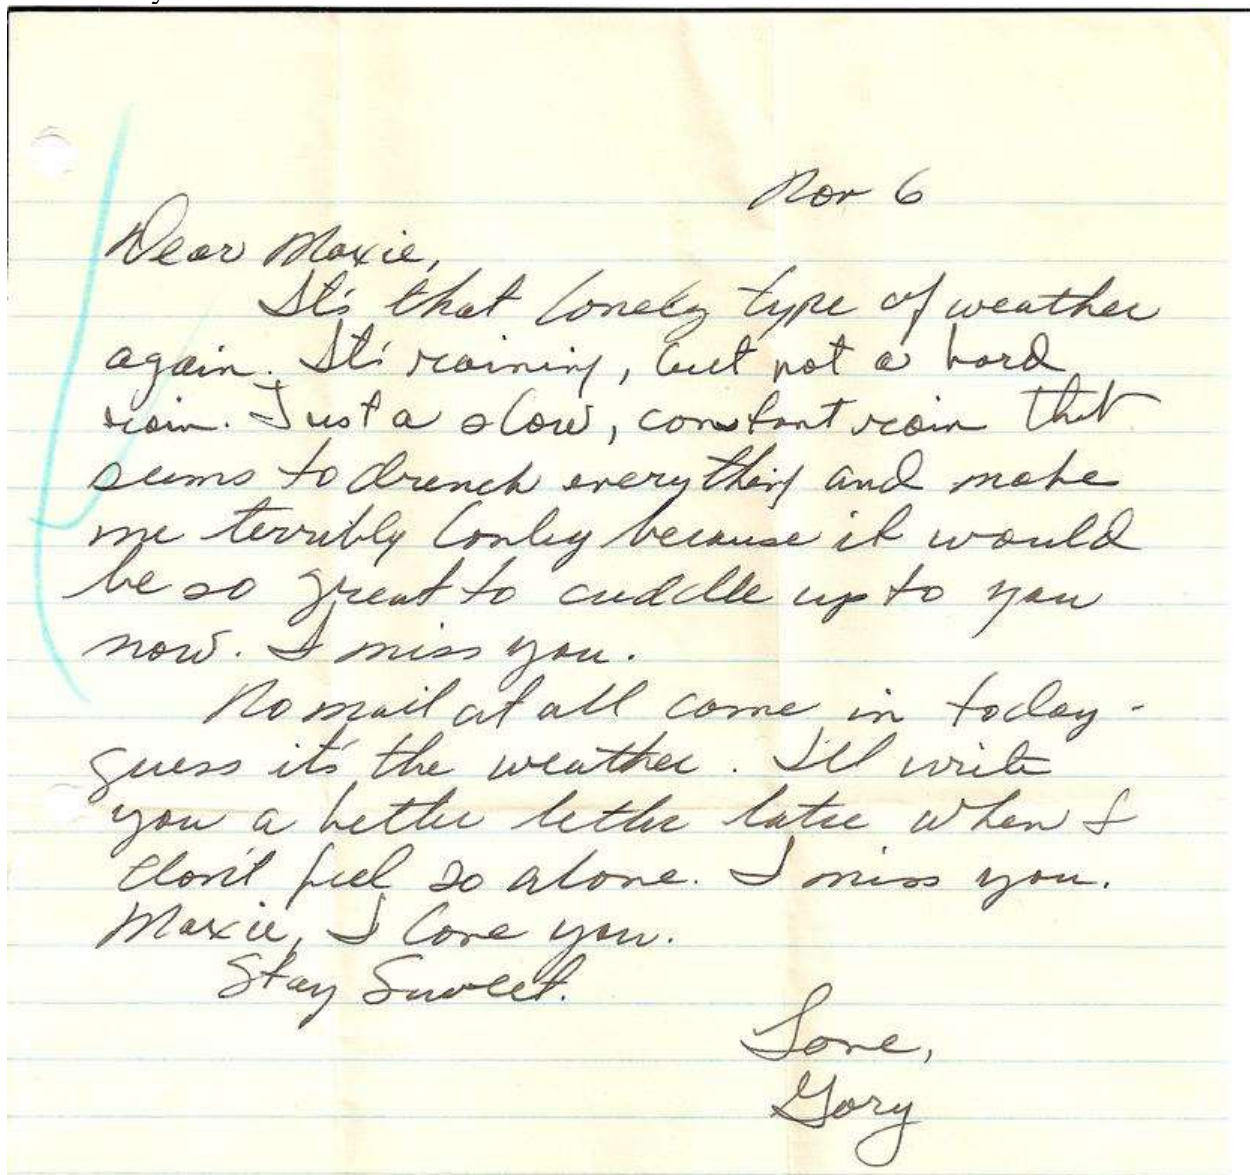 Nov 6
Dear Maxie,
It's that lonely type of weather
again. It's raining, but not a hard
rain. Just a slow, constant rain that
seems to drench everything and make
me terribly lonley because it would
be so great to cuddle up to you
now. I miss you.
No mail at all came in today -
guess it's the weather. I'll write
you a better letter later when I
don't feel so alone. I miss you.
Maxie, I love you.
Stay Sweet.
Love,
Gary